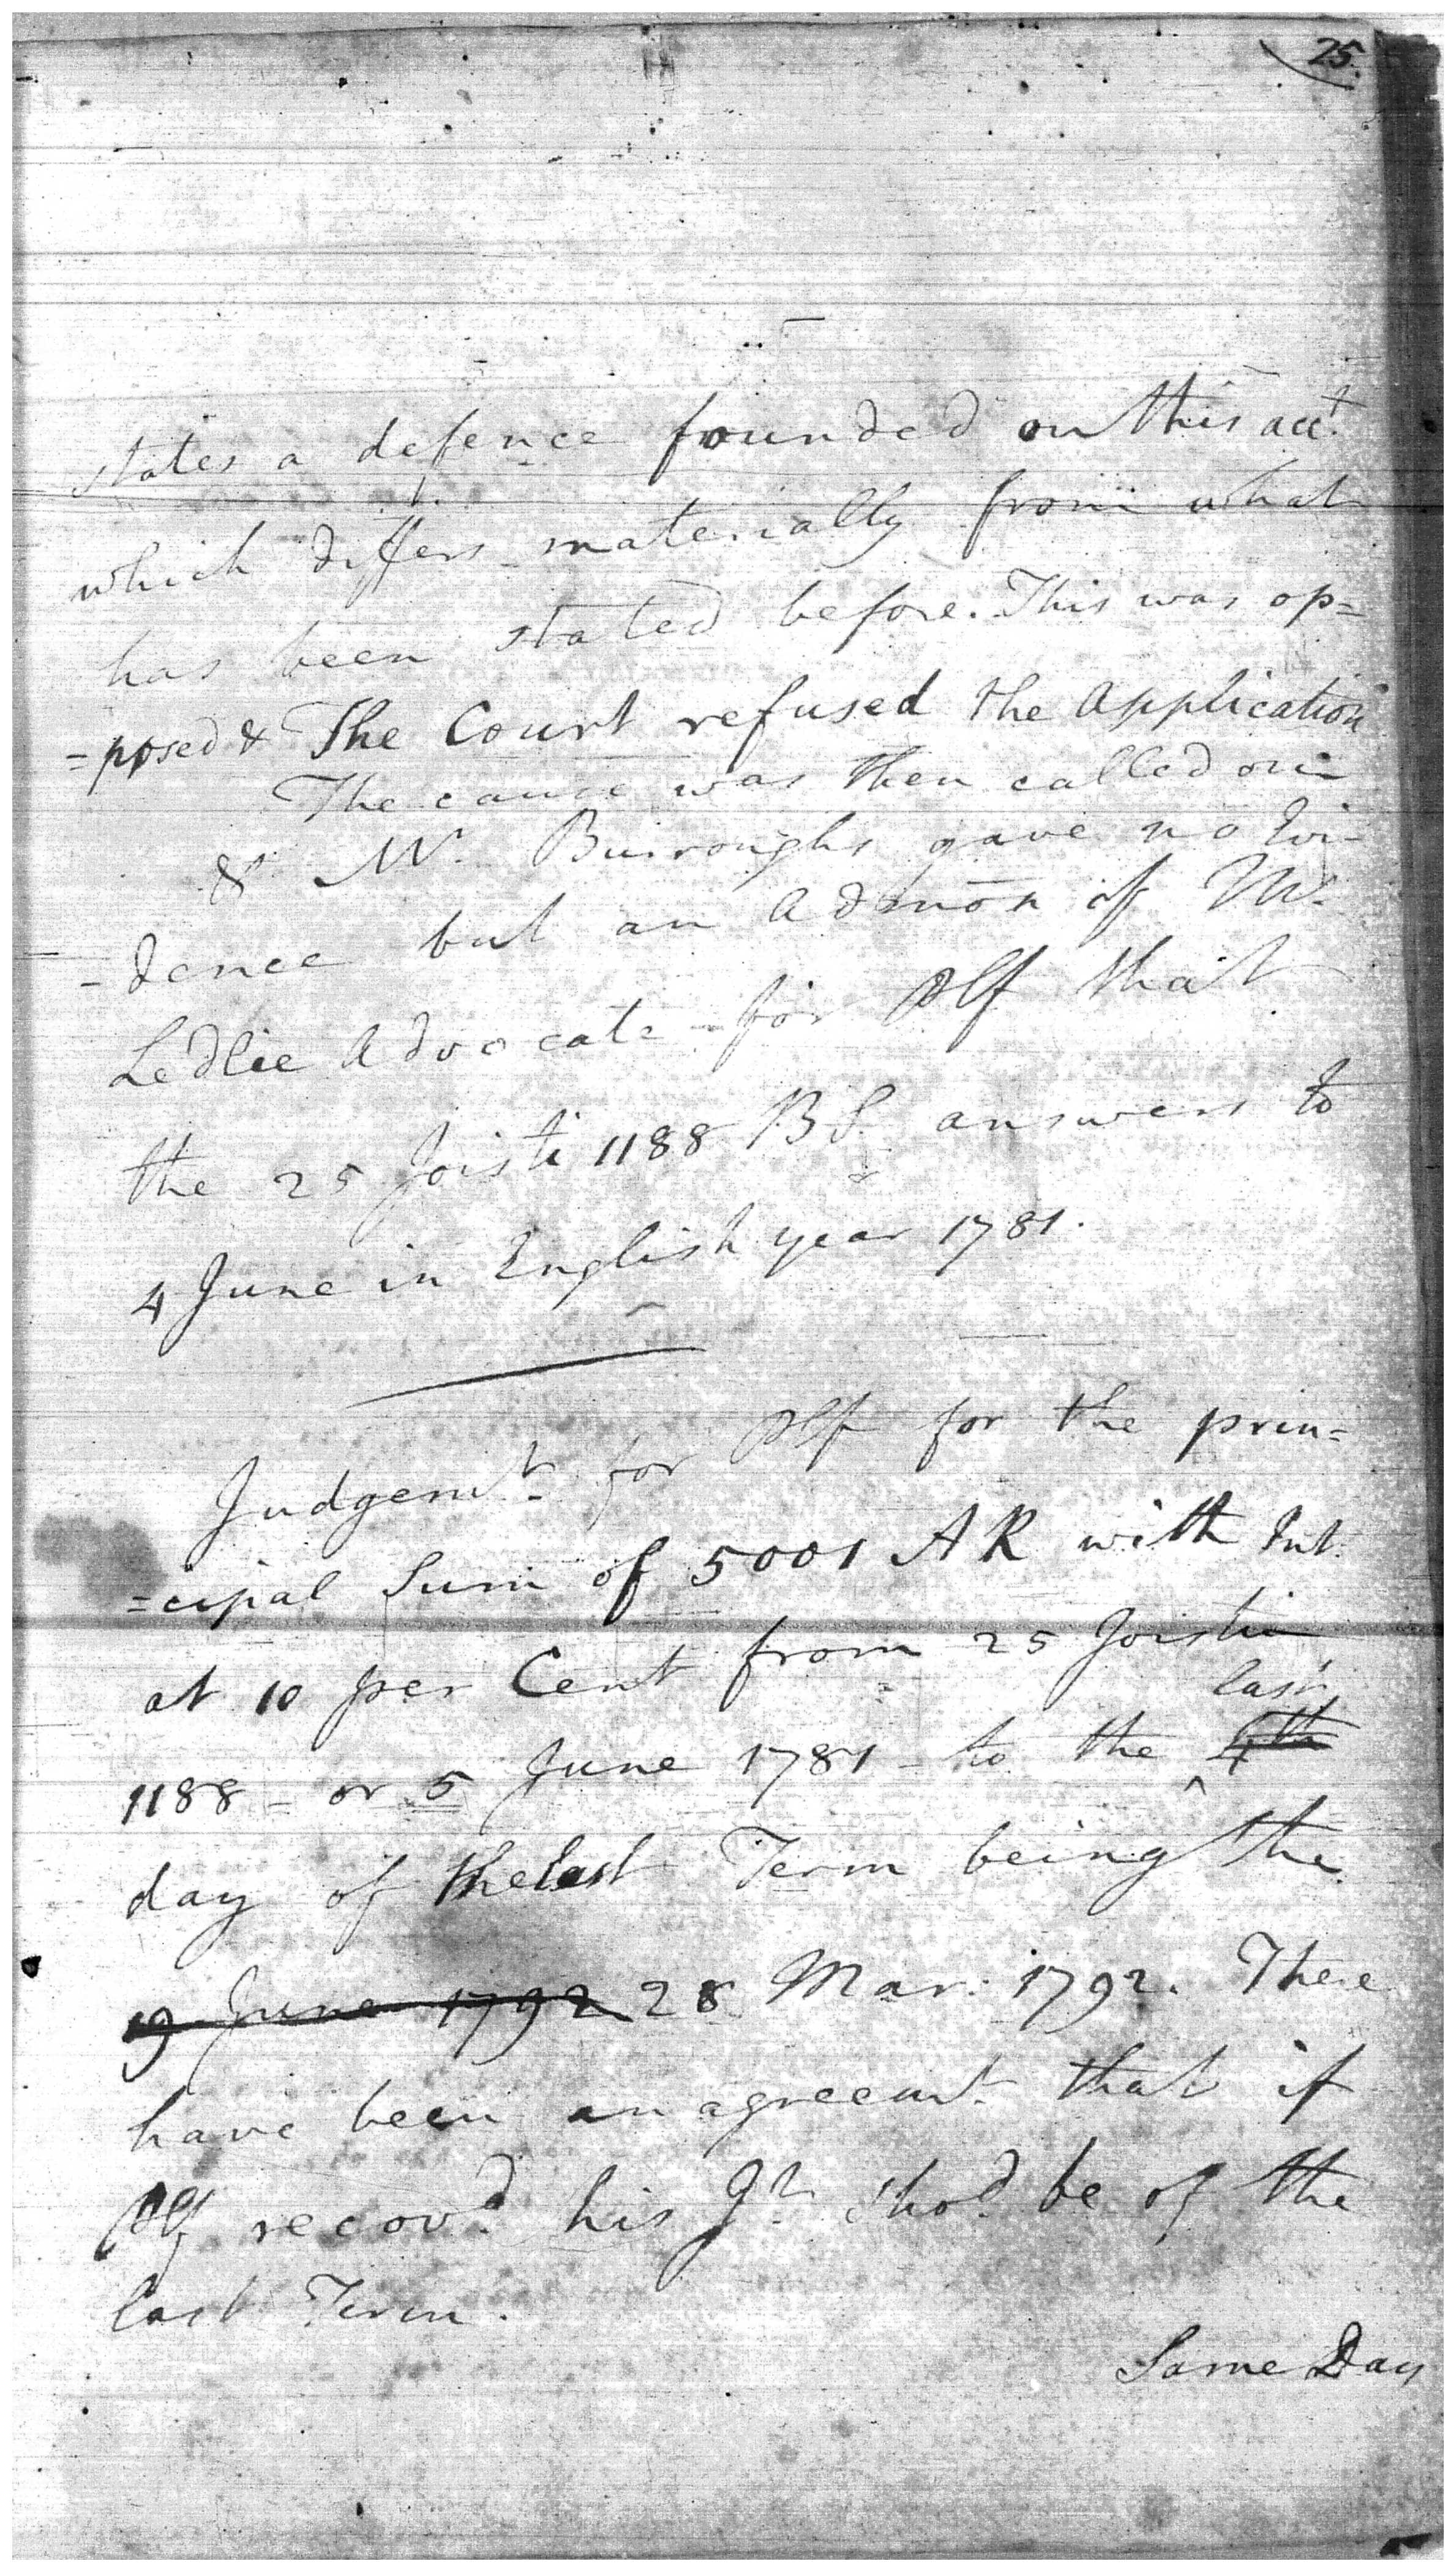 25.
states a defence founded on this acct.
which differs materially from what
has been stated before. This was op=
=posed & The Court refused the Application
The cause was then called on
& Mr. Burroughs gave no Evi-
-dence but an Admōn of Mr.
Ledlie Advocate for Plf that
the 25 Joisti 1188 BS. answers to
4 June in English year 1781.
Judgemt. for Plf for the prin=
=cipal Sum of 5001 AR with Int.
at 10 per Cent from 25 Joisti
last
1188 - or 5 June 1781 - to the ^ 4th
day of the last Term being the
19 June 1792 28 Mar: 1792. There
have been an agreemt. that if
Plf recovd. his Jt. shod. be of the
last Term.
Same Day